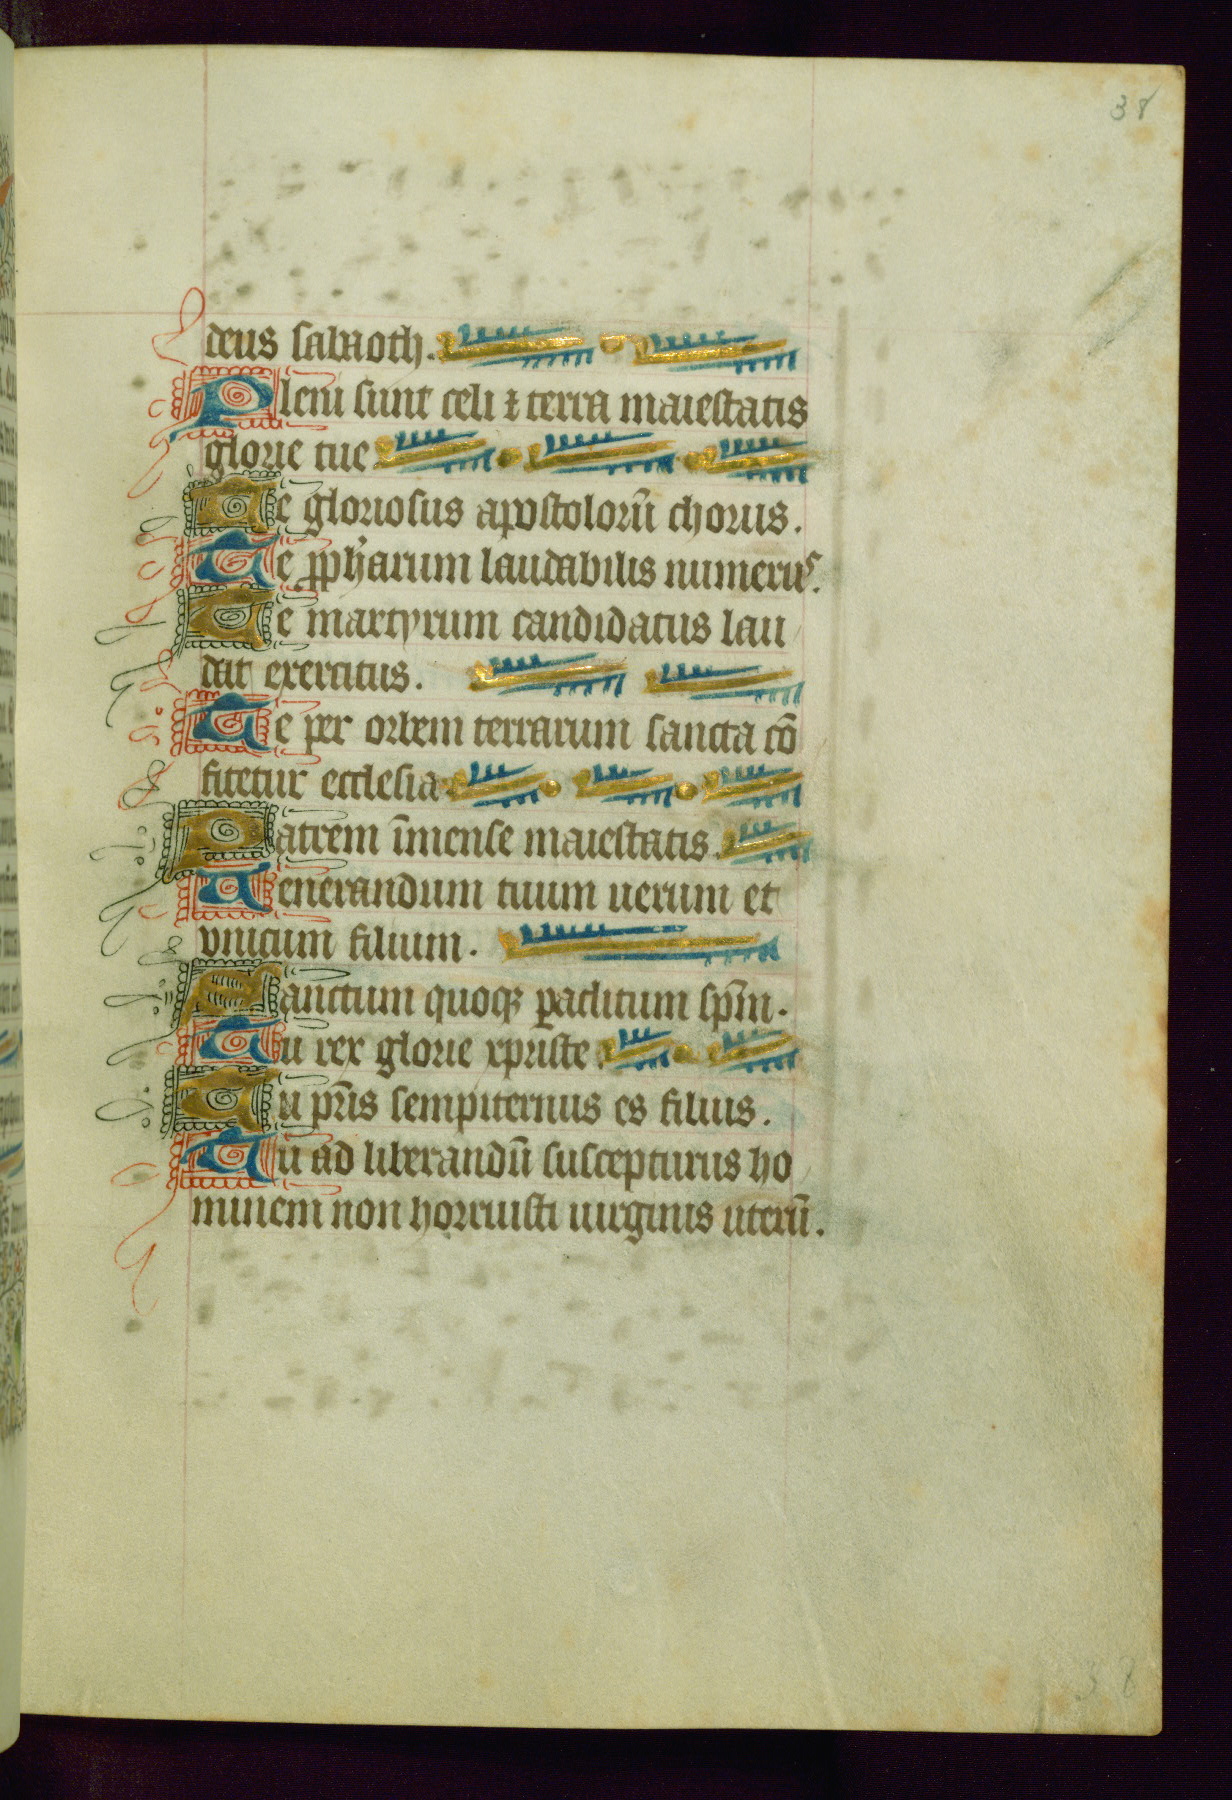 38
deus sabaoth.
Pleni sunt celi ⁊ terra maiestatis
glorie tue
Te gloriosus apostolorū chorus.
Te ꝓph̃arum laudabilis numerus.
Te martyrum candidatus lau
dat exercitus.
Te per orbem terrarum sancta cō
fitetur ecclesia
Patrem īmense maiestatis.
Uenerandum tuum uerum et
vnicum filium.
Sanctum quoqꝫ ꝑaclitum sp̄m.
Tu rex glorie xpriste.
Tu pr̄is sempiternus es filius.
Tu ad liberandū suscepturus ho
minem non horruisti uirginis uterū.
38